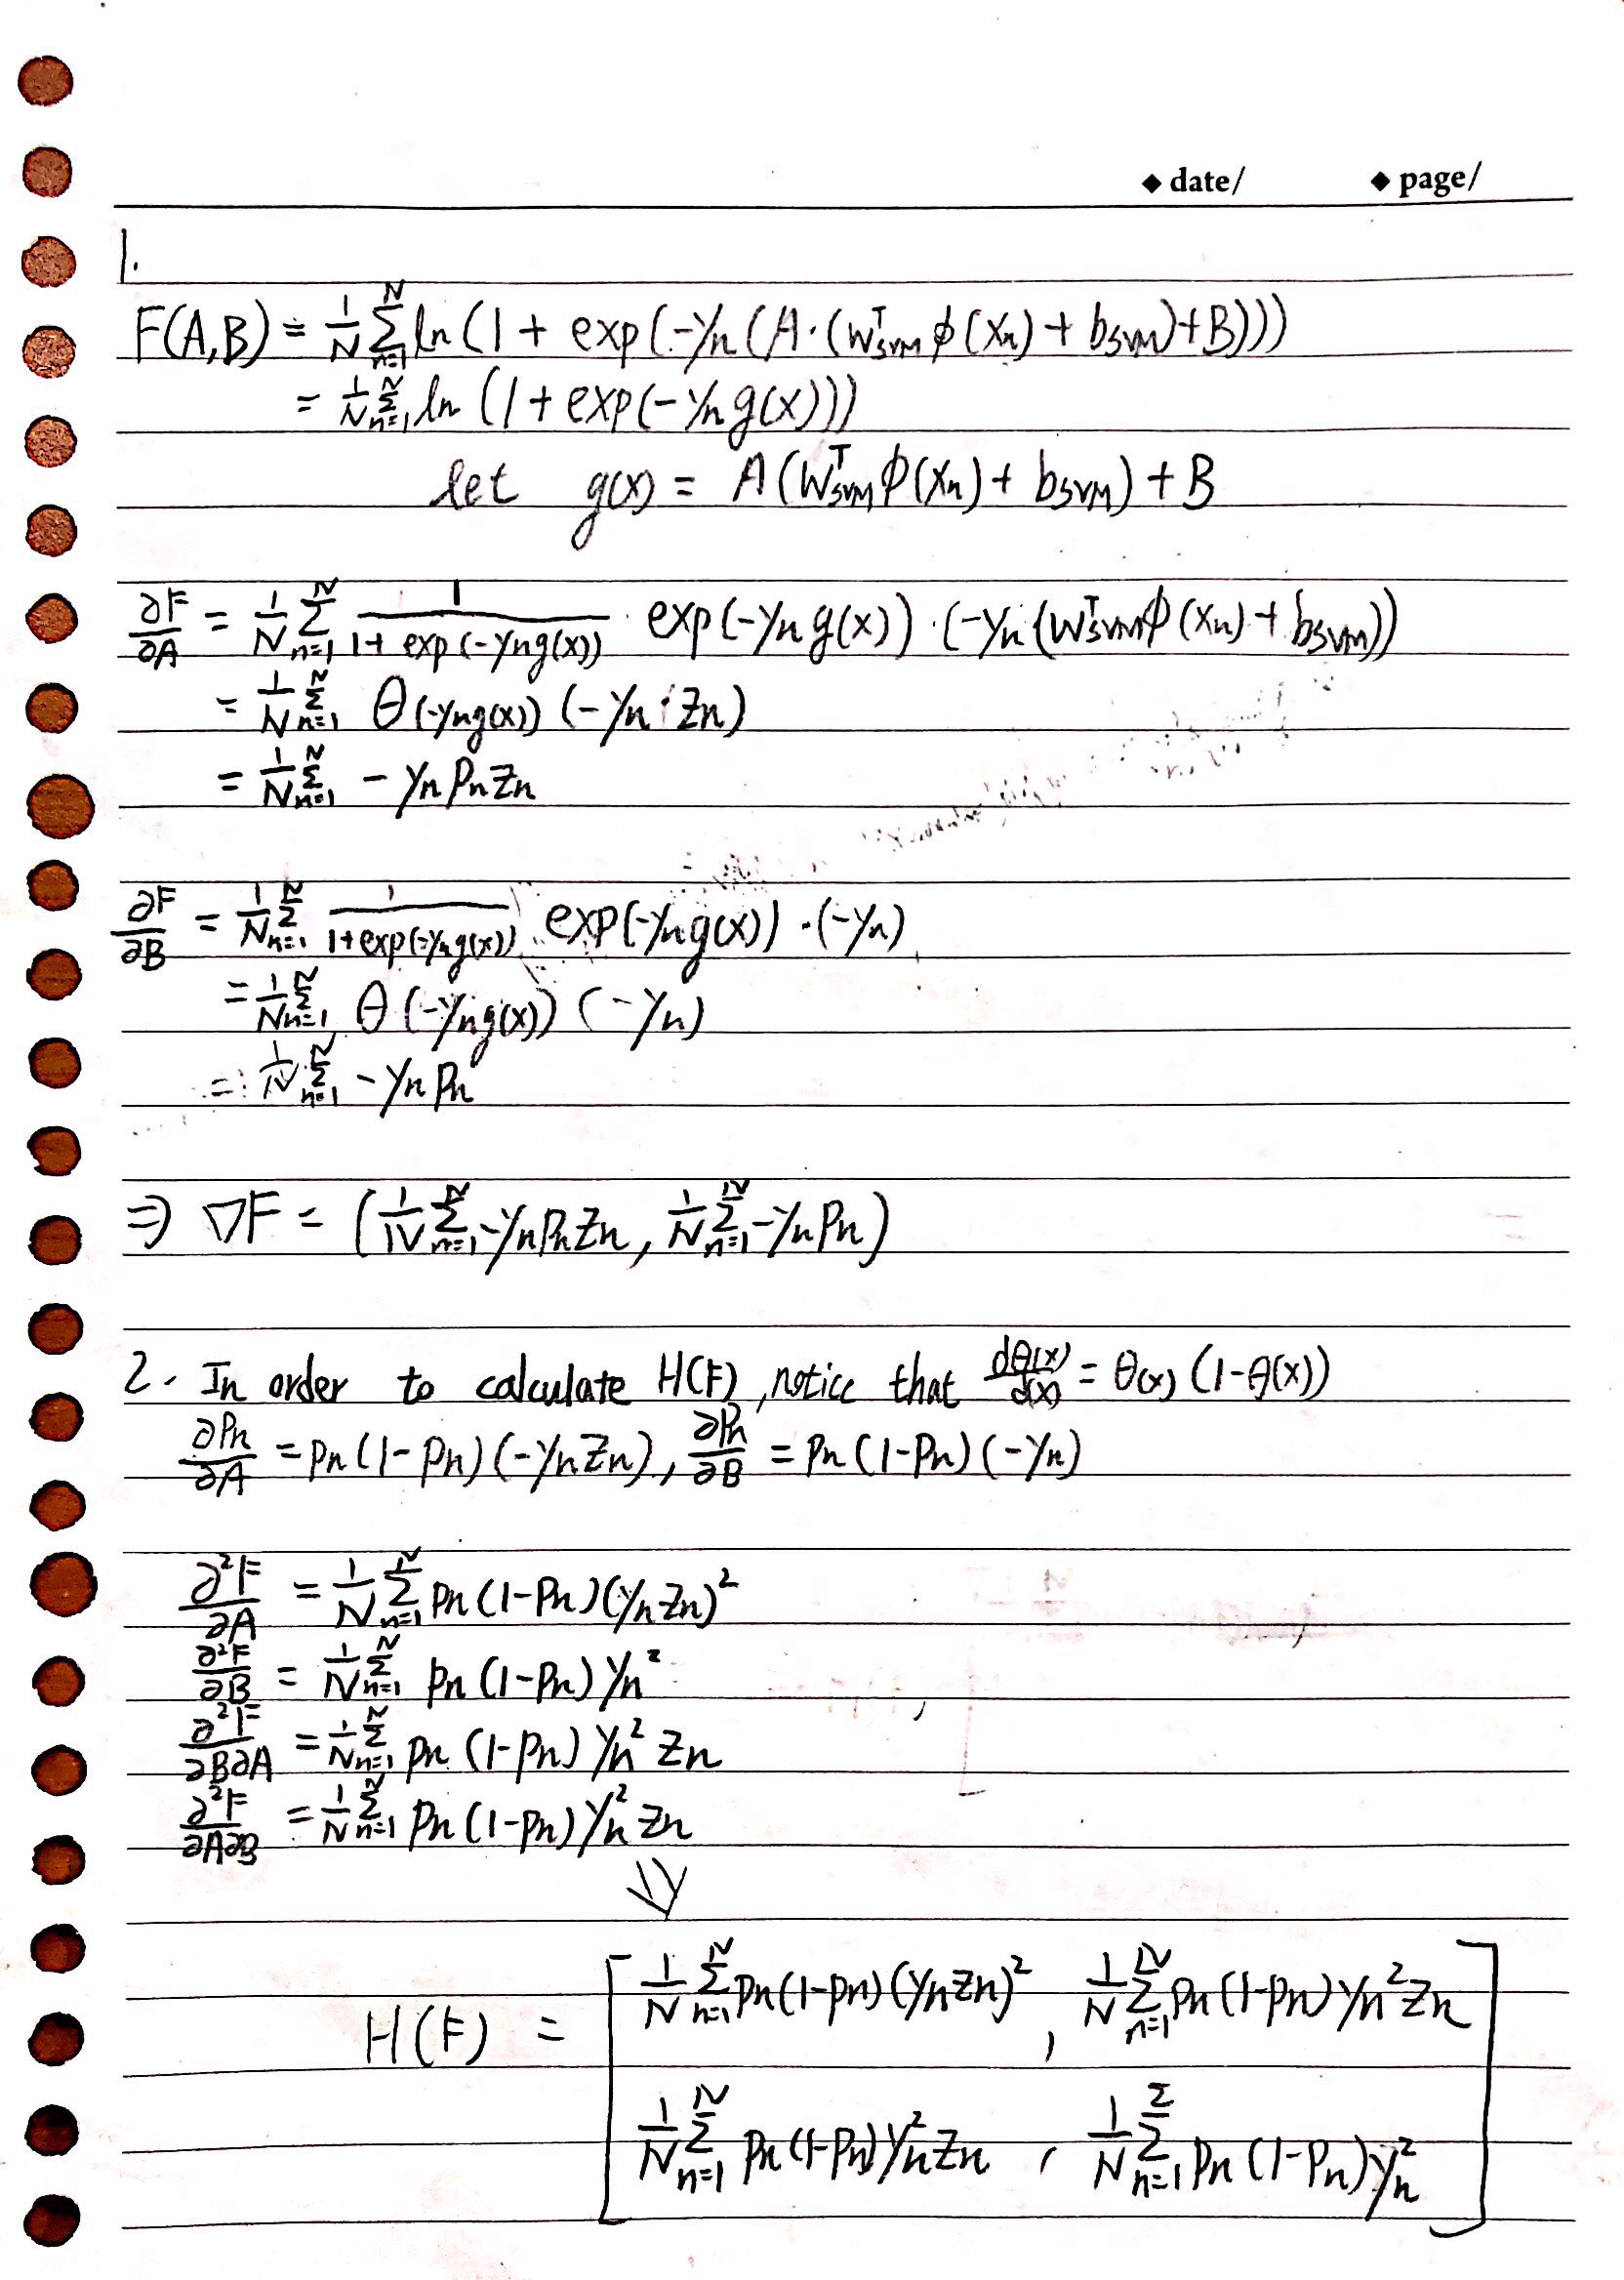 ◆ date/ ◆ page/
1.
F(A,B) = 1/N Σ_{n=1}^{N} ln(1 + exp(-yn(A·(w^T_SVM ϕ(xn) + b_SVM)+B)))
= 1/N Σ_{n=1}^{N} ln(1 + exp(-yn g(x)))
let g(x) = A(W^T_SVM ϕ(xn) + b_SVM) + B
∂F/∂A = 1/N Σ_{n=1}^{N} 1/(1+ exp(-yn g(x))) · exp(-yn g(x)) · (-yn(W^T_SVM ϕ(xn) + b_SVM))
= 1/N Σ_{n=1}^{N} θ(-yn g(x)) (-yn · zn)
= 1/N Σ_{n=1}^{N} - yn pn zn
∂F/∂B = 1/N Σ_{n=1}^{N} 1/(1+exp(-yn g(x))) exp(-yn g(x)) · (-yn)
= 1/N Σ_{n=1}^{N} θ(-yn g(x)) (-yn)
= 1/N Σ_{n=1}^{N} - yn pn
⇒ ∇F = (1/N Σ_{n=1}^{N} -yn pn zn, 1/N Σ_{n=1}^{N} -yn pn)
2. In order to calculate H(F), notice that dθ(x)/d(x) = θ(x) (1-θ(x))
∂pn/∂A = pn(1-pn)(-yn zn), ∂pn/∂B = pn(1-pn)(-yn)
∂²F/∂A = 1/N Σ_{n=1}^{N} pn(1-pn)(yn zn)²
∂²F/∂B = 1/N Σ_{n=1}^{N} pn(1-pn) yn²
∂²F/∂B∂A = 1/N Σ_{n=1}^{N} pn(1-pn) yn² zn
∂²F/∂A∂B = 1/N Σ_{n=1}^{N} pn(1-pn) yn² zn
⇓
H(F) = [ 1/N Σ_{n=1}^{N} pn(1-pn)(yn zn)² , 1/N Σ_{n=1}^{N} pn(1-pn) yn² zn
1/N Σ_{n=1}^{N} pn(1-pn) yn² zn , 1/N Σ_{n=1}^{Σ} pn(1-pn) yn² ]